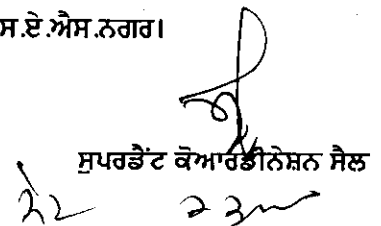 ਸ.ਏ.ਐਸ.ਨਗਰ।
ਸੁਪਰਡੈਂਟ ਕੋਆਰਡੀਨੇਸ਼ਨ ਸੈਲ